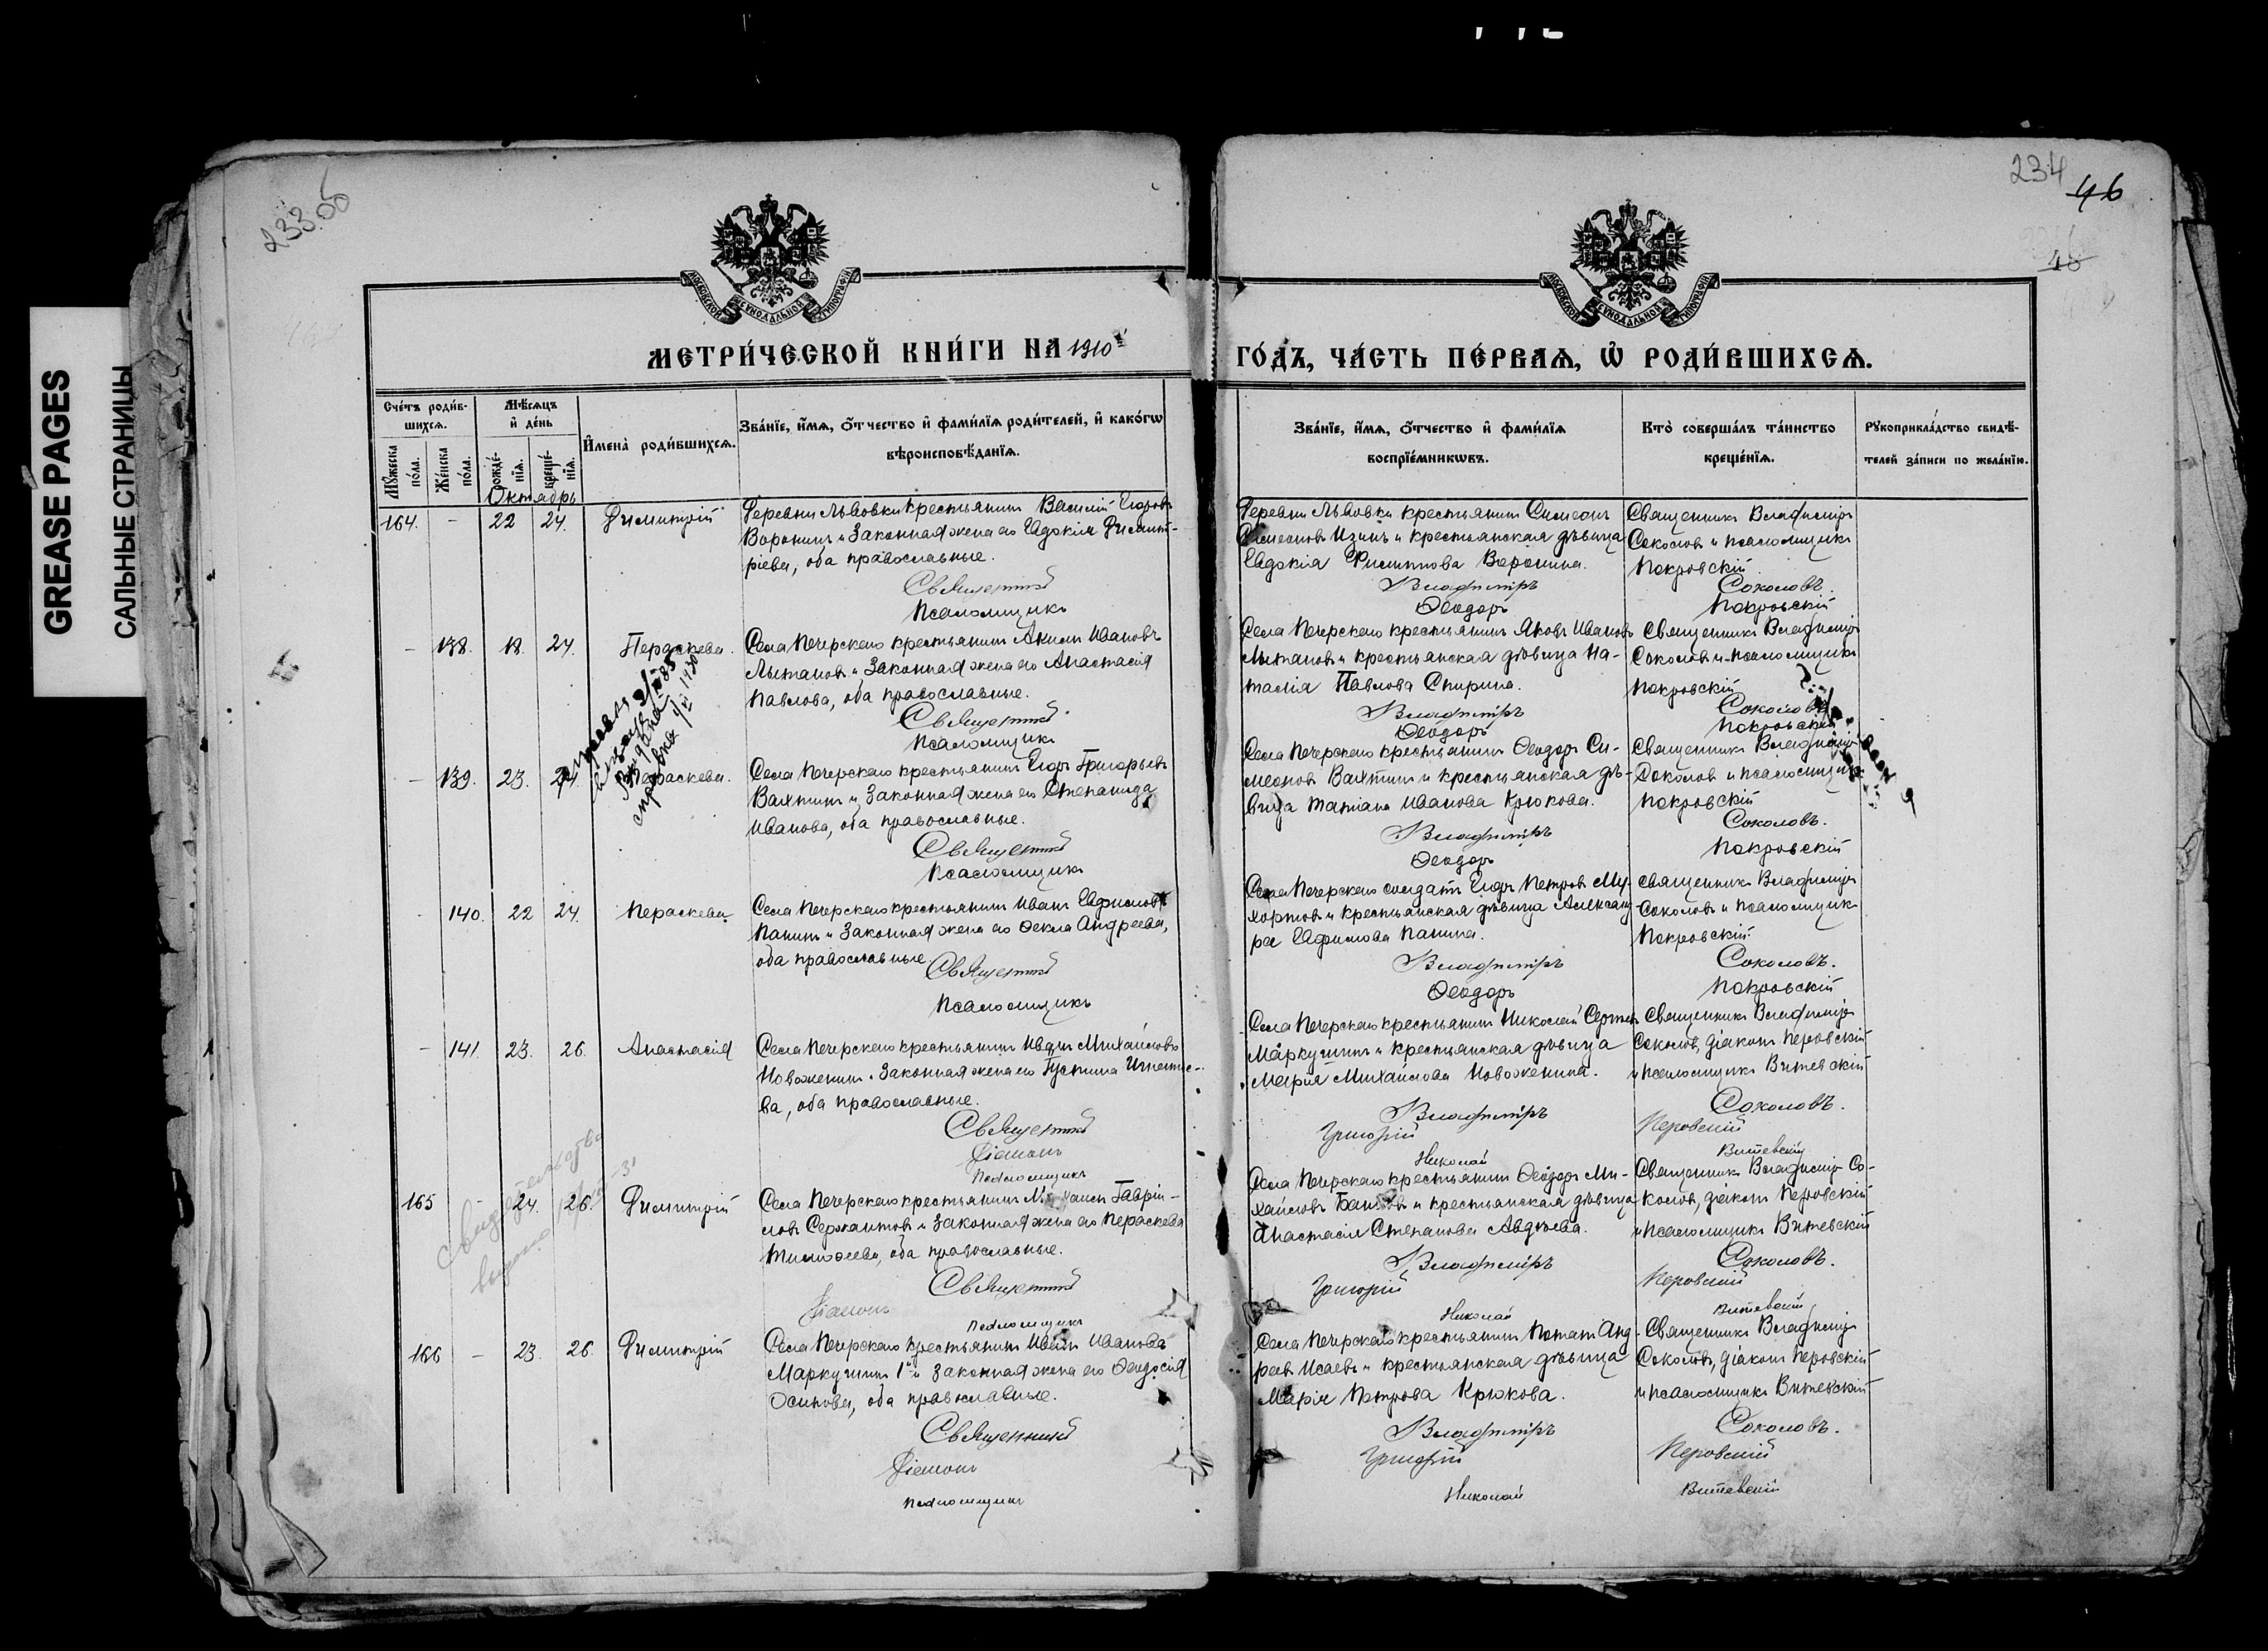 GREASE PAGES
САЛЬНЫЕ СТРАНИЦЫ
233 об
234
46
48
МОСКОВСКОЙ СѴНОДАЛЬНОЙ ТИПОГРАФІИ
МОСКОВСКОЙ СѴНОДАЛЬНОЙ ТИПОГРАФІИ
МЕТРИ́ЧЕСКОЙ КНИ́ГИ НА 1910 й
ГО́ДЪ, ЧА́СТЬ ПЕ́РВАѦ, Ѡ҆ РОДИ́ВШИХСѦ.
Сче́тъ роди́в-
шихсѧ.
Мꙋ́жеска по́ла.
Же́нска по́ла.
Мѣ́сѧцъ
и҆ де́нь
рожде́-нїѧ.
креще́-нїѧ.
И҆мена̀ роди́вшихсѧ.
Зва́нїе, и҆́мѧ, ѻ҆́тчество и҆ фами́лїѧ роди́телей, и҆ како́гѡ
вѣроисповѣ́данїѧ.
Зва́нїе, и҆́мѧ, ѻ҆́тчество и҆ фами́лїѧ
воспрїе́мникѡвъ.
Кто̀ соверша́лъ та́инство
креще́нїѧ.
Рꙋкоприкла́дство свидѣ́-
телей за́писи по жела́нїю.
Октябрь
164. - 22 24. Димитрій
Деревни Львовки крестьянинъ Василій Егоровъ
Воронинъ и законная жена его Евдокія Димит-
ріева, оба православные.
Священникъ
Псаломщикъ
Деревни Львовки крестьянинъ Симеонъ
Симеоновъ Изинъ и крестьянская дѣвица
Евдокія Филиппова Воронина.
Владиміръ
Ѳеодоръ
Священникъ Владиміръ
Соколовъ и псаломщикъ
Покровскій.
Соколовъ.
Покровскій
- 138. 18. 24. Параскева.
Села Печерскаго крестьянинъ Акимъ Ивановъ
Лытановъ и законная жена его Анастасія
Павлова, оба православные.
Священникъ
Псаломщикъ
Села Печерскаго крестьянинъ Яковъ Ивановъ
Лытановъ и крестьянская дѣвица На-
талія Павлова Спирина.
Владиміръ
Ѳеодоръ
Священникъ Владиміръ
Соколовъ и псаломщикъ
Покровскій
Соколовъ
Покровскій
Выдана
справка
- 139. 23. 24. Параскева.
Села Печерскаго крестьянинъ Егоръ Григорьевъ
Вахтинъ и законная жена его Степанида
Иванова, оба православные.
Священникъ
Псаломщикъ
Села Печерскаго крестьянинъ Ѳеодоръ Си-
меоновъ Вахтинъ и крестьянская дѣ-
вица Татіана Иванова Крюкова.
Владиміръ
Ѳеодоръ
Священникъ Владиміръ
Соколовъ и псаломщикъ
Покровскій
Соколовъ.
Покровскій
- 140. 22 24. Параскева
Села Печерскаго крестьянинъ Иванъ Евфимовъ
Панинъ и законная жена его Ѳекла Андреева,
оба православные
Священникъ
Псаломщикъ
Села Печерскаго солдатъ Егоръ Петровъ Му-
хортовъ и крестьянская дѣвица Александ
ра Евфимова Панина.
Владиміръ
Ѳеодоръ
Священникъ Владиміръ
Соколовъ и псаломщикъ
Покровскій.
Соколовъ.
Покровскій
- 141. 23. 26. Анастасія
Села Печерскаго крестьянинъ Иванъ Михайловъ
Новоженинъ и законная жена его Іустина Игнатье-
ва, оба православные.
Священникъ
Діаконъ
Псаломщикъ
Села Печерскаго крестьянинъ Николай Сергѣевъ
Маркушинъ и крестьянская дѣвица
Марія Михайлова Новоженина.
Владиміръ
Григорій
Николай
Священникъ Владиміръ
Соколовъ, діаконъ Перовскій
и псаломщикъ Витевскій
Соколовъ.
Перовскій
Витевскій
165 - 24. 26. Димитрій
Села Печерскаго крестьянинъ Михаилъ Гаврі-
ловъ Сержантовъ и законная жена его Параскева
Тимоѳеева, оба православные.
Священникъ
Діаконъ
Псаломщикъ
Села Печерскаго крестьянинъ Ѳеодоръ Ми-
хайловъ и крестьянская дѣвица
Анастасія Степанова Авдѣева.
Владиміръ
Григорій
Николай
Священникъ Владиміръ Со-
коловъ, діаконъ Перовскій
и псаломщикъ Витевскій
Соколовъ.
Перовскій
Витевскій
166 - 23. 26. Димитрій
Села Печерскаго крестьянинъ Иванъ Ивановъ
Маркушинъ 1й и законная жена его Ѳеодосія
Осипова, оба православные.
Священникъ
Діаконъ
Псаломщикъ
Села Печерскаго крестьянинъ Потапъ Анд-
реевъ Исаевъ и крестьянская дѣвица
Марія Петрова Крюкова.
Владиміръ
Григорій
Николай
Священникъ Владиміръ
Соколовъ, діаконъ Перовскій
и псаломщикъ Витевскій
Соколовъ.
Перовскій
Витевскій